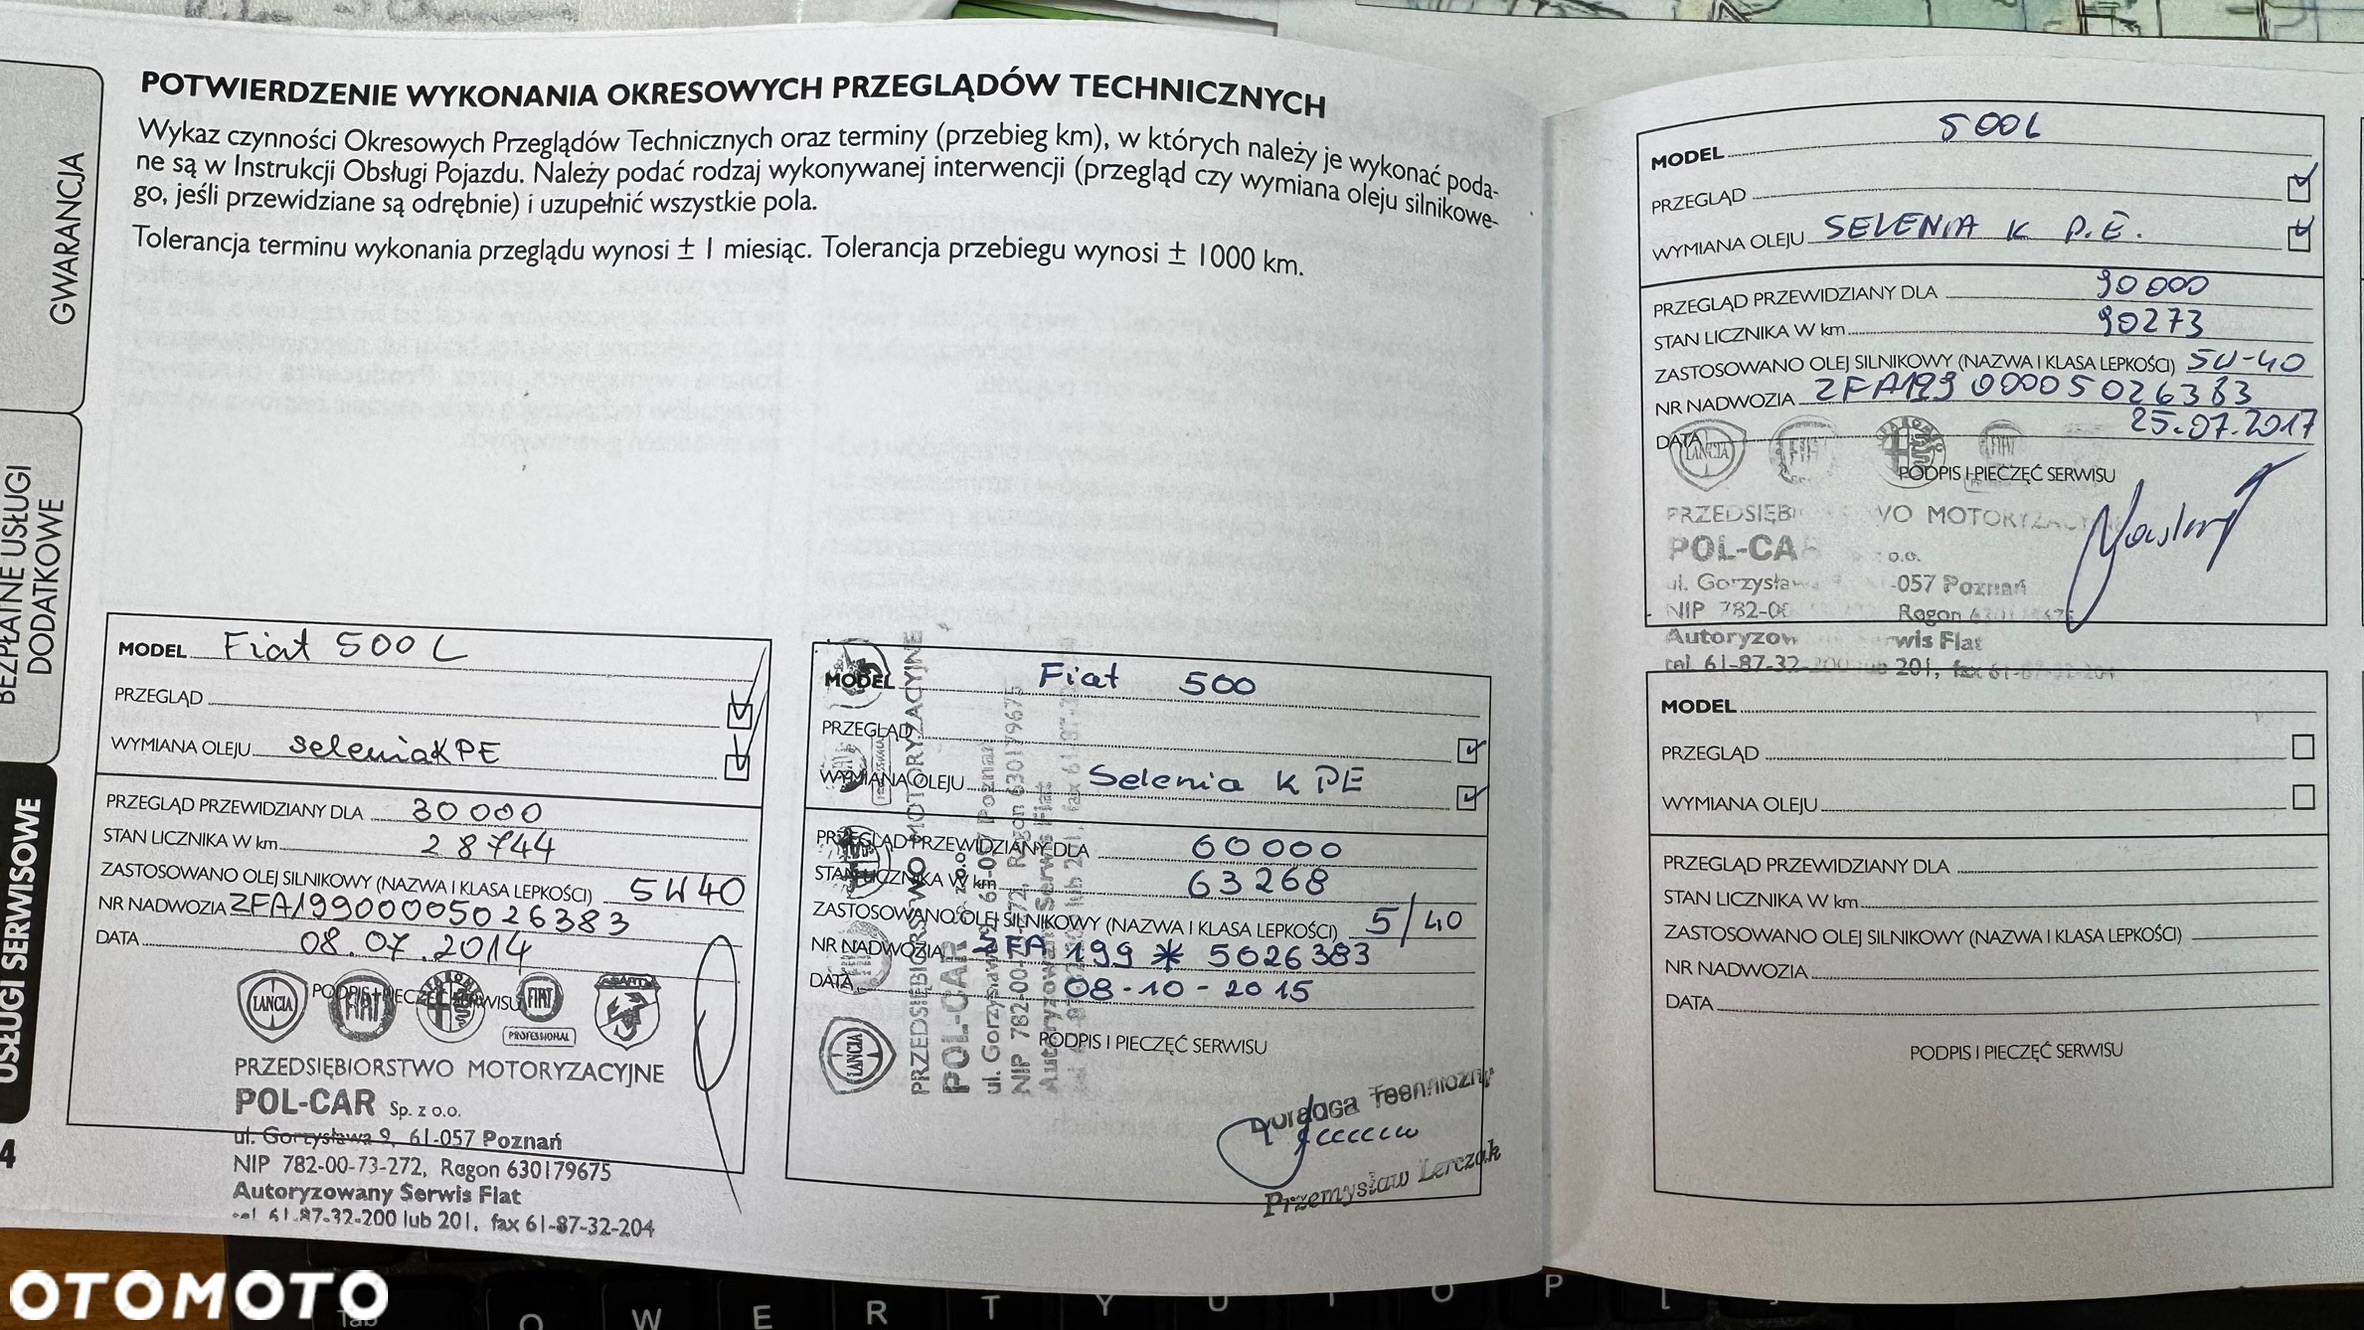 GWARANCJA
BEZPŁATNE USŁUGI
DODATKOWE
USŁUGI SERWISOWE
4
POTWIERDZENIE WYKONANIA OKRESOWYCH PRZEGLĄDÓW TECHNICZNYCH
Wykaz czynności Okresowych Przeglądów Technicznych oraz terminy (przebieg km), w których należy je wykonać poda-
ne są w Instrukcji Obsługi Pojazdu. Należy podać rodzaj wykonywanej interwencji (przegląd czy wymiana oleju silnikowe-
go, jeśli przewidziane są odrębnie) i uzupełnić wszystkie pola.
Tolerancja terminu wykonania przeglądu wynosi ± 1 miesiąc. Tolerancja przebiegu wynosi ± 1000 km.
MODEL Fiat 500 L
PRZEGLĄD
WYMIANA OLEJU SeleniaK PE
PRZEGLĄD PRZEWIDZIANY DLA 30000
STAN LICZNIKA W km 28744
ZASTOSOWANO OLEJ SILNIKOWY (NAZWA I KLASA LEPKOŚCI) 5W40
NR NADWOZIA ZFA19900005026383
DATA 08.07.2014
PODPIS I PIECZĘĆ SERWISU
LANCIA FIAT FIAT ABARTH
PROFESSIONAL
PRZEDSIĘBIORSTWO MOTORYZACYJNE
POL-CAR Sp. z o.o.
ul. Gorzysława 9, 61-057 Poznań
NIP 782-00-73-272, Regon 630179675
Autoryzowany Serwis Fiat
tel. 61-87-32-200 lub 201, fax 61-87-32-204
MODEL Fiat 500
PRZEGLĄD
WYMIANA OLEJU Selenia K PE
PRZEGLĄD PRZEWIDZIANY DLA 60000
STAN LICZNIKA W km 63268
ZASTOSOWANO OLEJ SILNIKOWY (NAZWA I KLASA LEPKOŚCI) 5/40
NR NADWOZIA ZFA 199 * 5026383
DATA 08-10-2015
PODPIS I PIECZĘĆ SERWISU
LANCIA
PRZEDSIĘBIORSTWO MOTORYZACYJNE
POL-CAR z o.o.
ul. Gorzysława Poznań
NIP 782-00- Regon 630179675
Autoryzowany Serwis Fiat
Przemysław Lerczak
MODEL 500L
PRZEGLĄD
WYMIANA OLEJU SELENIA K P.E.
PRZEGLĄD PRZEWIDZIANY DLA 90000
STAN LICZNIKA W km 90273
ZASTOSOWANO OLEJ SILNIKOWY (NAZWA I KLASA LEPKOŚCI) 5W-40
NR NADWOZIA ZFA19900005026383
DATA 25.07.2017
LANCIA FIAT FIAT
PODPIS I PIECZĘĆ SERWISU
POL-CAR z o.o.
ul. Gorzysława -057 Poznań
NIP 782-00 Regon
Serwis Fiat
tel. 61-87-32-200 lub 201, fax 61-87-32-204
MODEL
PRZEGLĄD
WYMIANA OLEJU
PRZEGLĄD PRZEWIDZIANY DLA
STAN LICZNIKA W km
ZASTOSOWANO OLEJ SILNIKOWY (NAZWA I KLASA LEPKOŚCI)
NR NADWOZIA
DATA
PODPIS I PIECZĘĆ SERWISU
OTOMOTO
Tab Q W E R T Y U I O P